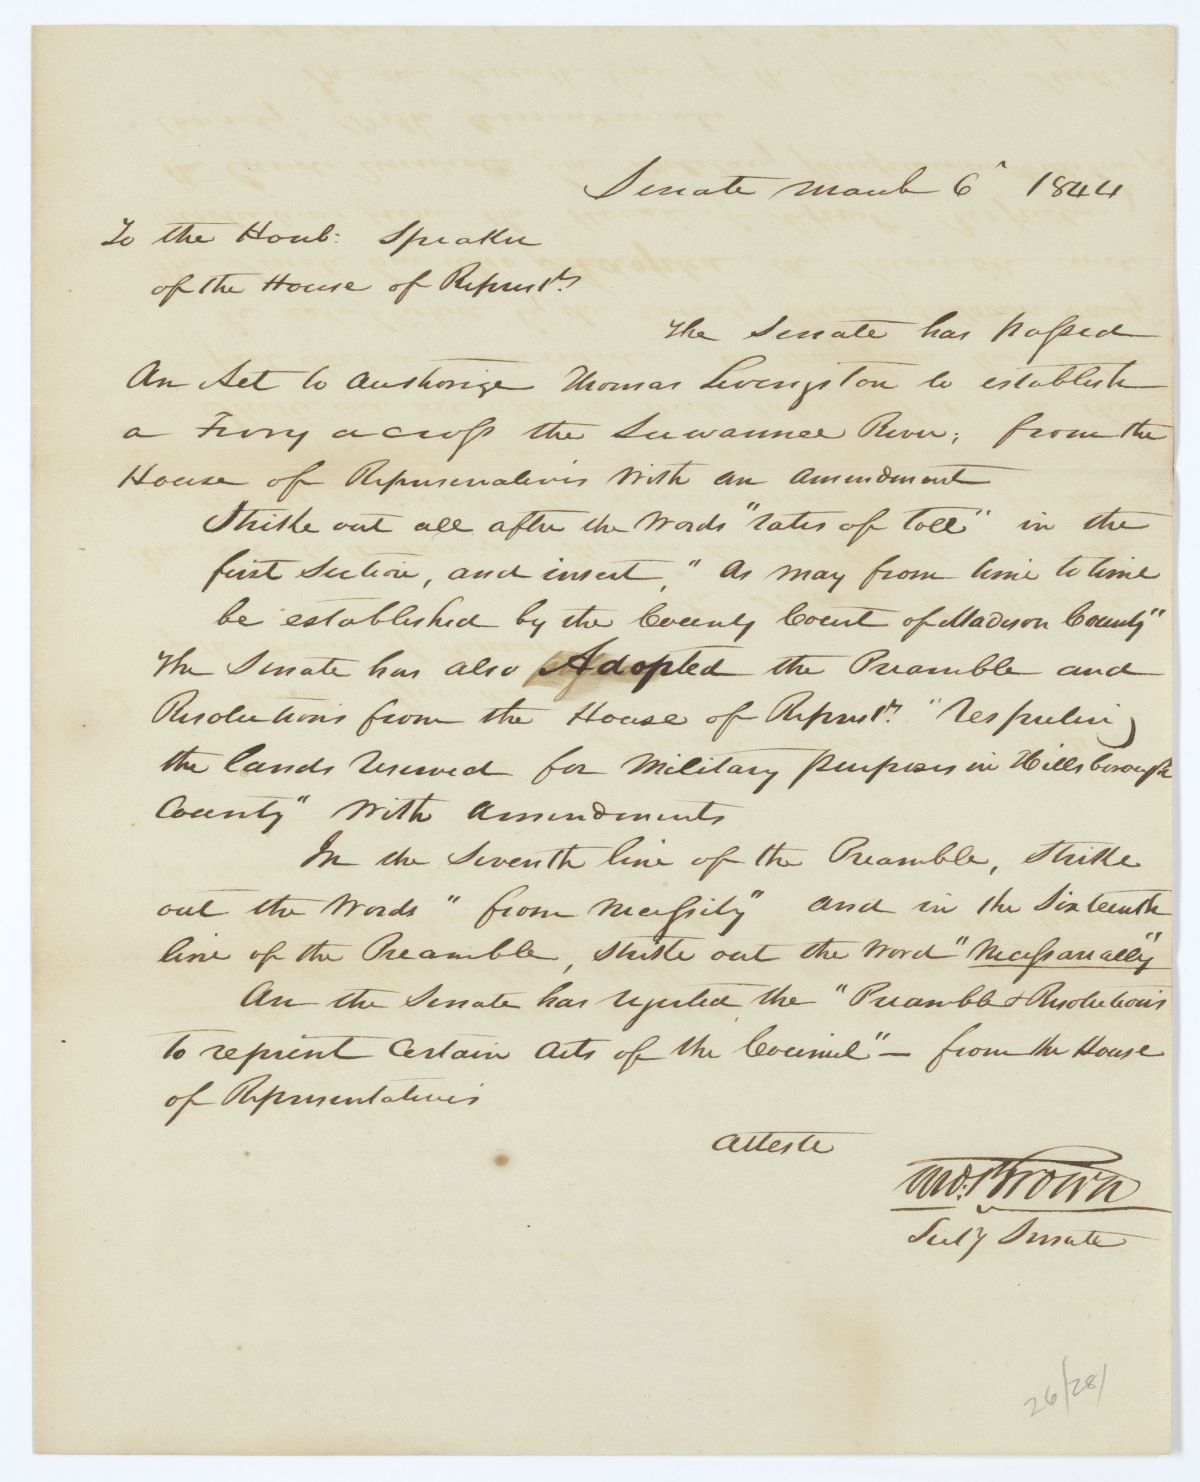 Senate March 6th 1844
To the Honb: Speaker
of the House of Represts.
The Senate has passed
An Act to authorize Thomas Livingston to establish
a Ferry across the Suwannee River; from the
House of Representatives with an amendment
Strike out all after the words "rates of toll" in the
first Section, and insert, "as may from time to time
be established by the County Court of Madison County"
The Senate has also Adopted the Preamble and
Resolutions from the House of Represts. "respecting
the lands reserved for Military purposes in Hillsborough
County" with amendments
In the Seventh line of the Preamble, Strike
out the words "from necessity" and in the Sixteenth
line of the Preamble, strike out the word "Necessarially"
An the Senate has rejected the "Preamble & Resolutions
to reprint certain acts of the Council" – from the House
of Representatives
Atteste
Tho: Brown
Secty Senate
26/28/